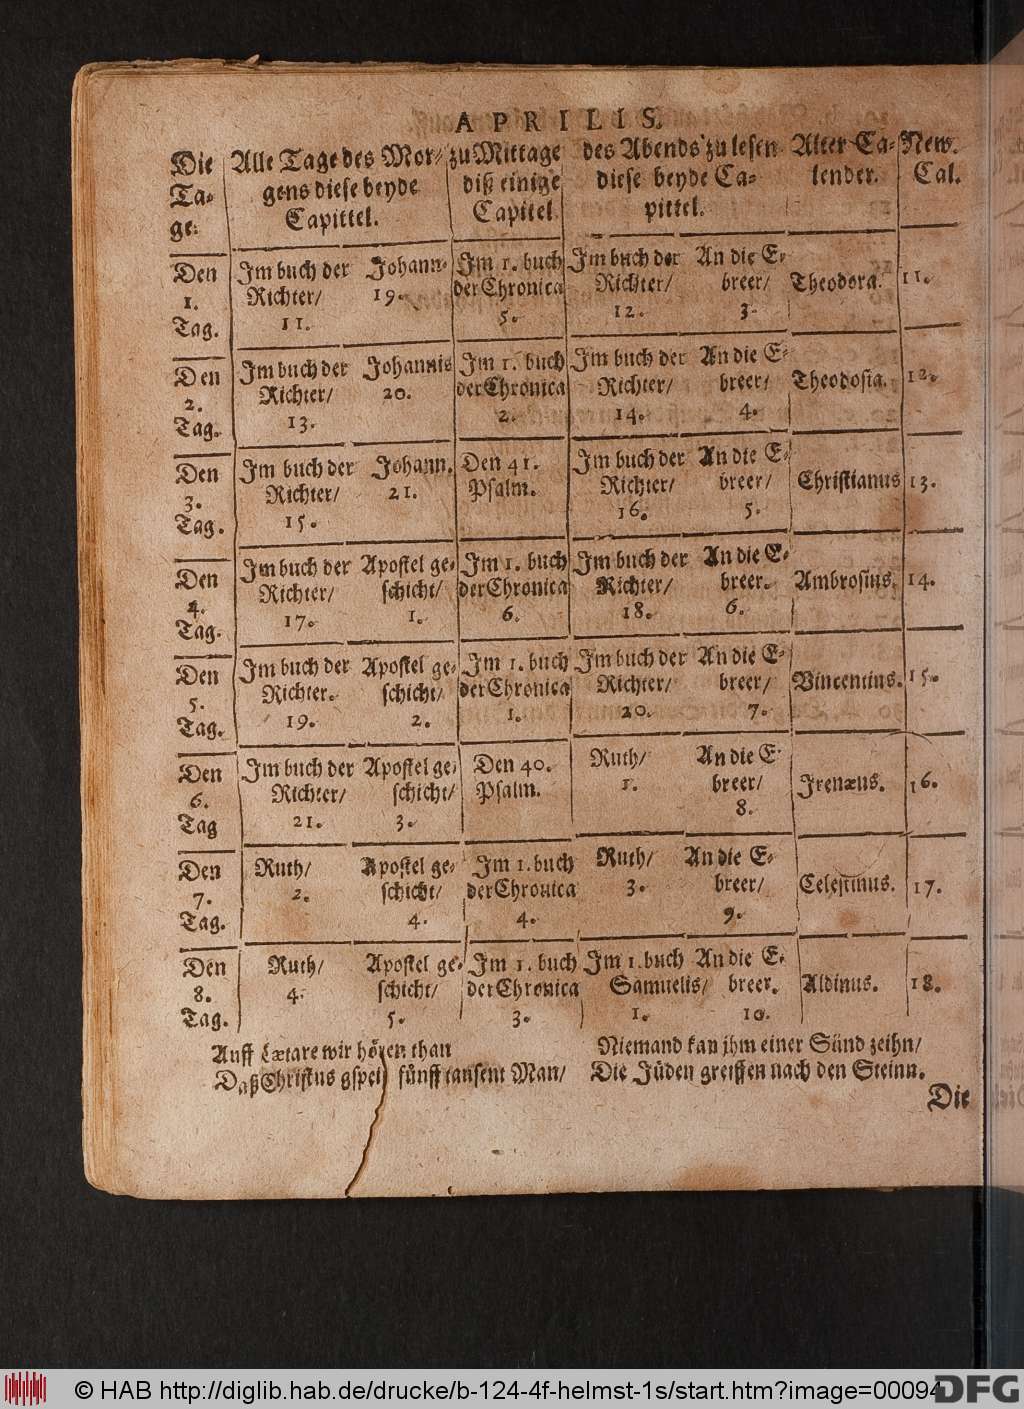 APRILIS.
Die Ta- ge:
Alle Tage des Mor- gens diese beyde Capittel.
zu Mittage diß einige Capitel.
des Abends zu lesen diese beyde Ca- pittel.
Alter Ca- lender.
New. Cal.
Den 1. Tag.
Im buch der Richter/ 11.
Johann. 19.
Im 1. buch der Chronica 5.
Im buch der Richter/ 12.
An die E- breer/ 3.
Theodora.
11.
Den 2. Tag.
Im buch der Richter/ 13.
Johannis 20.
Im 1. buch der Chronica 2.
Im buch der Richter/ 14.
An die E- breer/ 4.
Theodosia.
12.
Den 3. Tag.
Im buch der Richter/ 15.
Johann. 21.
Den 41. Psalm.
Im buch der Richter/ 16.
An die E- breer/ 5.
Christianus
13.
Den 4. Tag.
Im buch der Richter/ 17.
Apostel ge- schicht/ 1.
Im 1. buch der Chronica 6.
Im buch der Richter/ 18.
An die E- breer. 6.
Ambrosius.
14.
Den 5. Tag.
Im buch der Richter. 19.
Apostel ge- schicht/ 2.
Im 1. buch der Chronica 1.
Im buch der Richter/ 20.
An die E- breer/ 7.
Vincentius.
15.
Den 6. Tag
Im buch der Richter/ 21.
Apostel ge- schicht/ 3.
Den 40. Psalm.
Ruth/ 1.
An die E- breer/ 8.
Irenæus.
16.
Den 7. Tag.
Ruth/ 2.
Apostel ge- schicht/ 4.
Im 1. buch der Chronica 4.
Ruth/ 3.
An die E- breer/ 9.
Celestinus.
17.
Den 8. Tag.
Ruth/ 4.
Apostel ge- schicht/ 5.
Im 1. buch der Chronica 3.
Im 1. buch Samuelis/ 1.
An die E- breer. 10.
Aldinus.
18.
Auff Lætare wir hören than
Daß Christus gspeist fünff tausent Man/
Niemand kan jhm einer Sünd zeihn/
Die Jüden greiffen nach den Steinn.
Die
© HAB http://diglib.hab.de/drucke/b-124-4f-helmst-1s/start.htm?image=00094
DFG